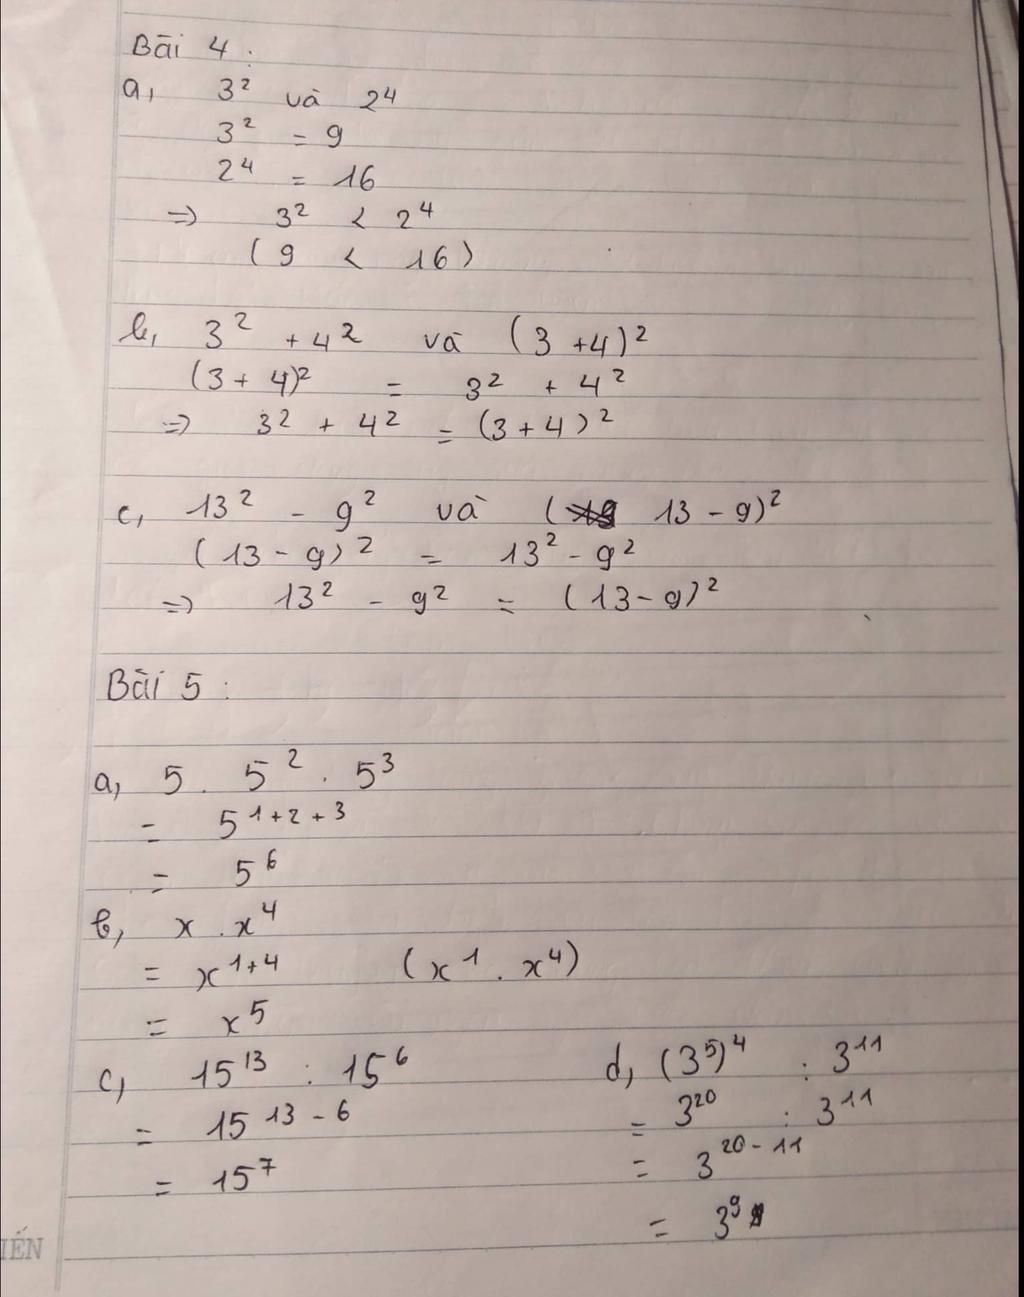 Bài 4 :
a, 3² và 2⁴
3² = 9
2⁴ = 16
=> 3² < 2⁴
( 9 < 16 )
b, 3² + 4² và ( 3 + 4 )²
(3 + 4)² = 3² + 4²
=> 3² + 4² = (3 + 4 )²
c, 13² - 9² và ( 13 - 9)²
( 13 - 9 )² = 13² - 9²
=> 13² - 9² = ( 13 - 9 )²
Bài 5 :
a, 5 . 5² . 5³
= 5¹⁺²⁺³
= 5⁶
b, x . x⁴
= x¹⁺⁴ ( x¹ . x⁴ )
= x⁵
c, 15¹³ : 15⁶
= 15¹³⁻⁶
= 15⁷
d, (3⁵)⁴ : 3¹¹
= 3²⁰ : 3¹¹
= 3²⁰⁻¹¹
= 3⁹
IẾN